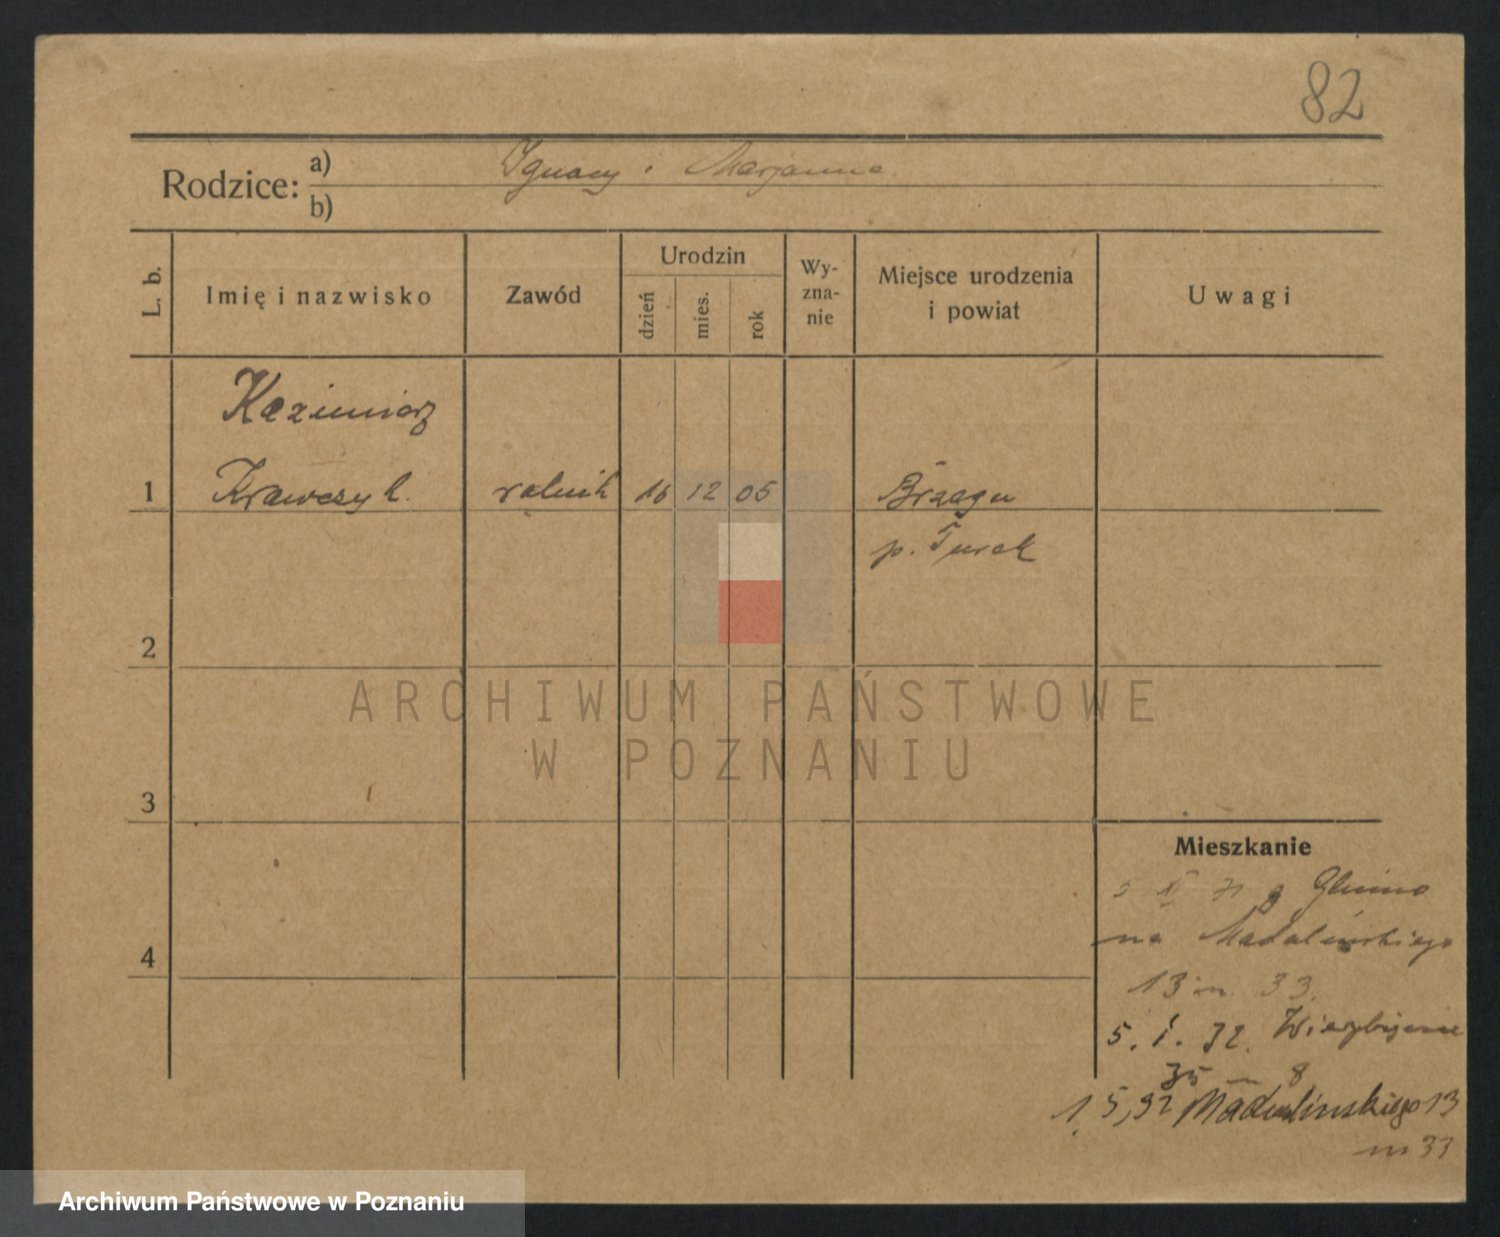 82
Rodzice: a) Ignacy i Marjanna.
b)
L. b.
Imię i nazwisko
Zawód
Urodzin
dzień
mies.
rok
Wy-
zna-
nie
Miejsce urodzenia
i powiat
Uwagi
Kazimierz
1 Krawczyk. rolnik 16 12 05
p. Turek
2
ARCHIWUM PAŃSTWOWE
W POZNANIU
3
Mieszkanie
4
na Madalińskiego
13 m. 33.
5. I. 32.
35 m 8
1. 5, 32 Madalińskiego 13
m 33
Archiwum Państwowe w Poznaniu